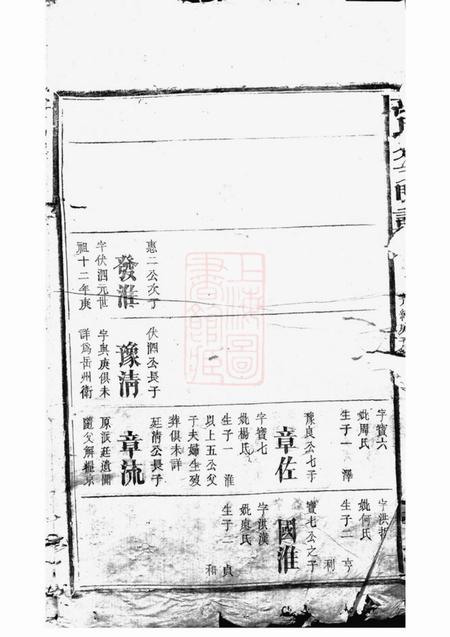 惠二公次子
發淮
字伏泗元世
祖十二年庚
伏泗公長子
豫清
字與庚俱未
詳爲岳州衛
字寶六
妣周氏
生子一 澤
豫良公七子
章佐
字寶七
妣楊氏
生子一 淮
以上五公父
子夫婦生歿
葬俱未詳
廷清公長子
章流
字洪
妣何氏
生子二 亨 利
寶七公之子
國淮
字洪漢
妣龐氏
生子二 貞 和
上海圖書館藏